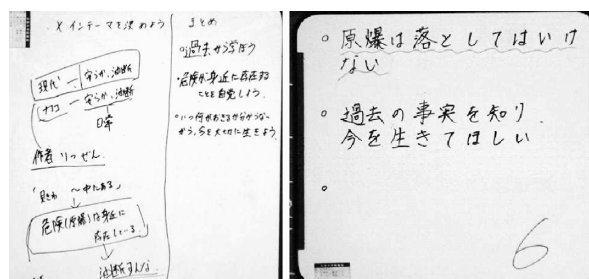 メインテーマを決めよう
現代 — 安らか、油断
ナチコ — 安らか、油断
日常
作者 りつぜん
「見きわ 〜 中にある」
危険(原爆)は身近に
存在している
油断すんな。
まとめ
過去から学ぼう
・危険が身近に存在する
ことを自覚しよう。
・いつ何がおきるか分からない
から、今を大切に生きよう。
○ 原爆は落としてはいけ
ない
○ 過去の事実を知り
今を生きてほしい
○
6